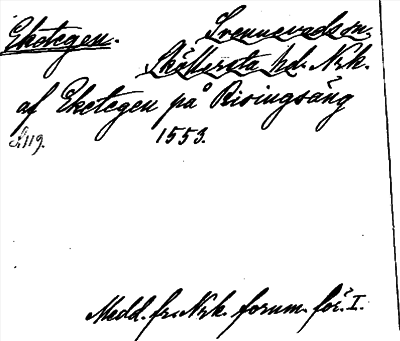 Eketegen. Svennevads sn,
Sköllersta hd. Nrk.
af Eketegen på Risingsäng
s. 119. 1553.
Medd. fr. Nrk. fornm. för. I.